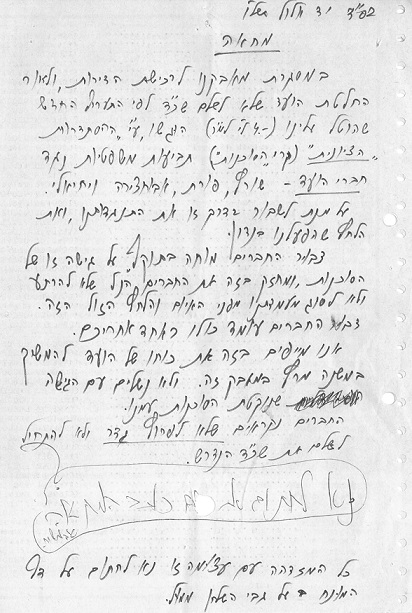 בס"ד יד אלול תשל"ו
מחאה
במסגרת מאבקנו לרכישת הדירות, ולאור
החלטת הועד שלא לשלם שכ"ד לפי התעריף החדש
שהוטל עלינו הוגשו, ע"י "ההסתדרות
הציונית" (קרי, הסוכנות) תביעות משפטיות נגד
חברי הועד - שורץ, פורת, אבוחצירה ויחיאלי.
על מנת לשבור בדרך זו את התנגדותנו, ואת
הלחץ שהפעלנו בנדון.
ציבור החברים מוחה בתוקף על גישה זו של
הסוכנות, ומחזק בזה את החברים הנ"ל שלא להרתע
ולא לסגת מעמדתנו מפני האיום והלחץ הזול הזה.
ציבור החברים עומד כולו כאחד אחריכם.
אנו מייפים בזה את כוחו של הועד להמשיך
במשנה מרץ במאבק זה. ולא נשלים עם הגישה
שנוקטת הסוכנות עמנו.
החברים נקראים שלא לפרוץ גדר ולא להתחיל
לשלם את שכ"ד הנדרש.
נא לחתום גם כתב
כל המזדהה עם עצומה זו נא לחתום על דף
המונח ב של גבי השלחן ממול.